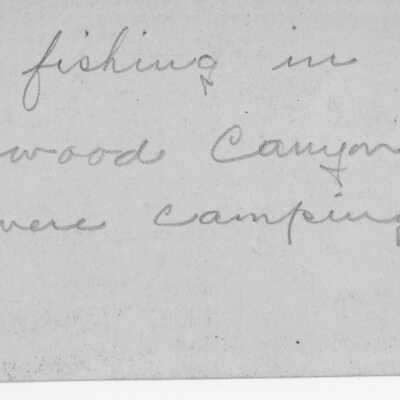 fishing in
wood Canyon
were camping